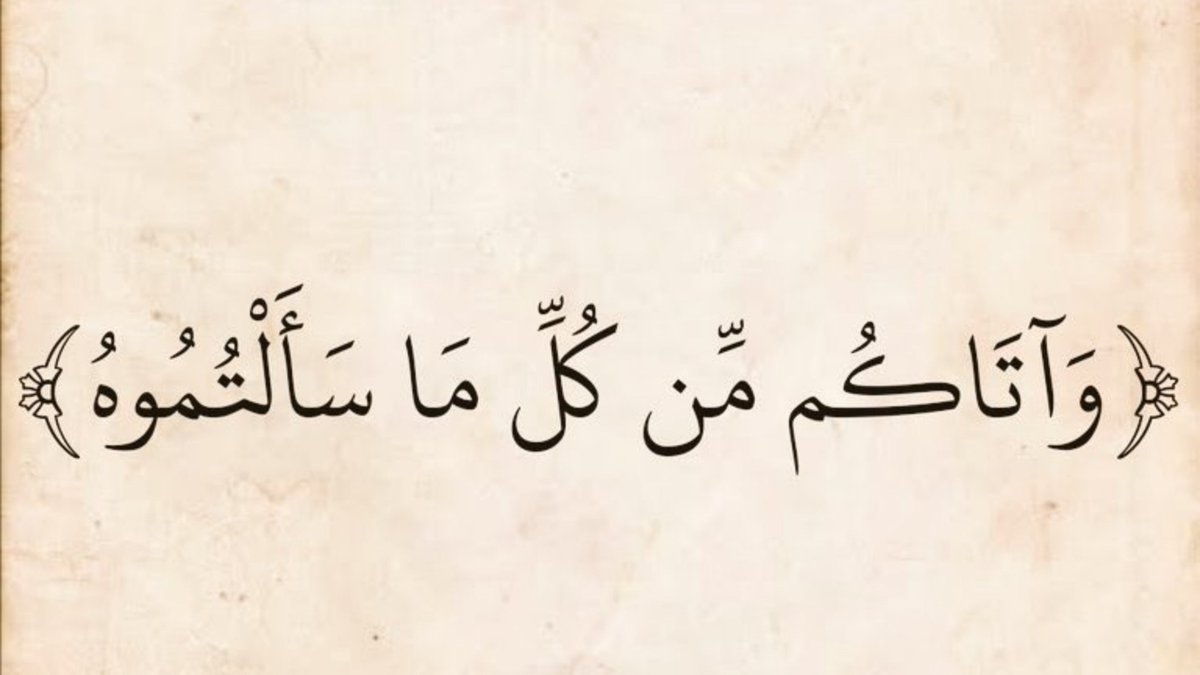 ﴿ وَآتَاكُم مِّن كُلِّ مَا سَأَلْتُمُوهُ ﴾